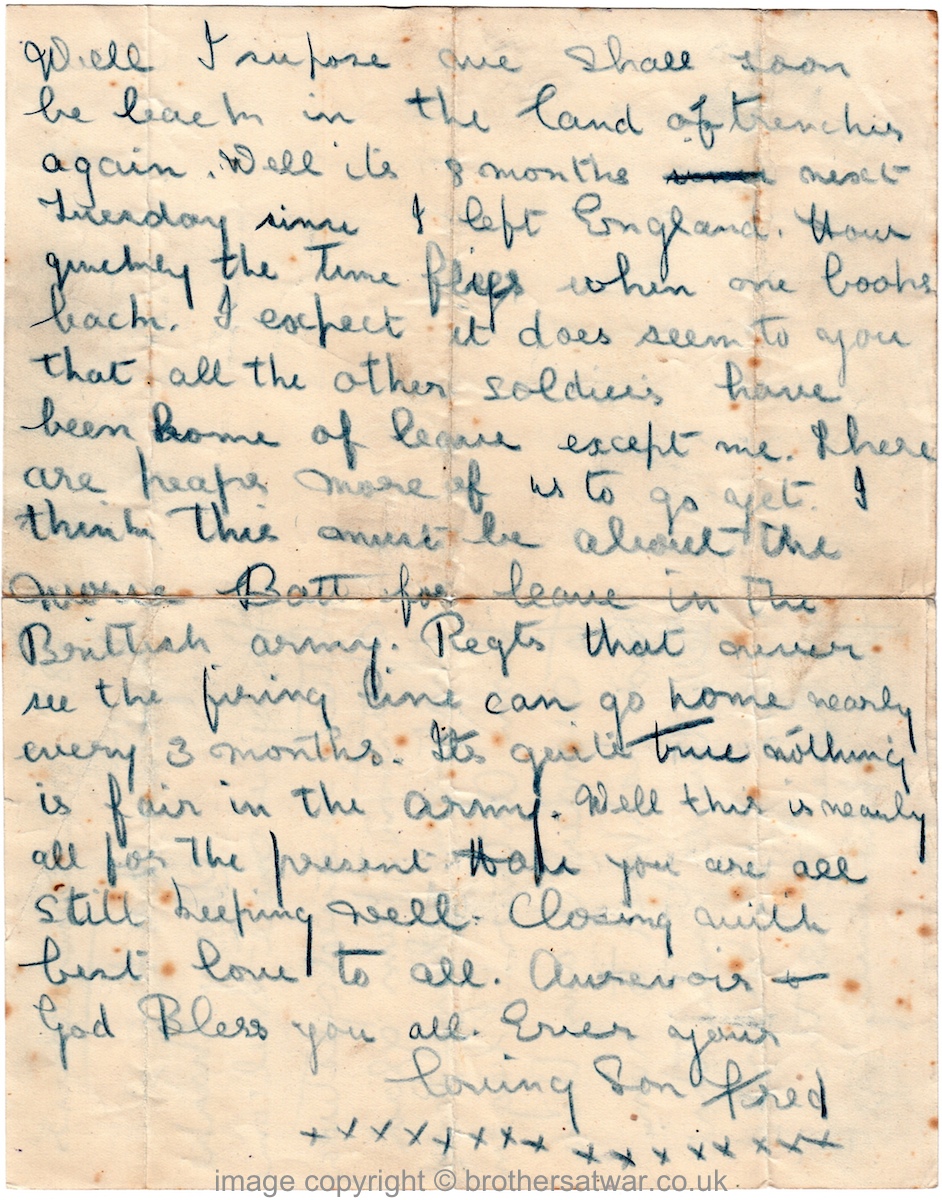 Well I supose we shall soon
be back in the land of trenches
again. Well its 8 months next
Tuesday since I left England. How
quickley the time flies when one looks
back. I expect it does seem to you
that all the other soldiers have
been home of leave except me. There
are heaps more of us to go yet. I
think this must be about the
worse Batt for leave in the
Brittish army. Regts that never
see the firing line can go home nearly
every 3 months. Its quite true nothing
is fair in the army. Well this is nearly
all for the present Hope you are all
still keeping well. Closing with
best love to all. Aurevoir +
God Bless you all. Ever your
loving Son Fred
xxxxxxxx xxxxxxxx
image copyright © brothersatwar.co.uk